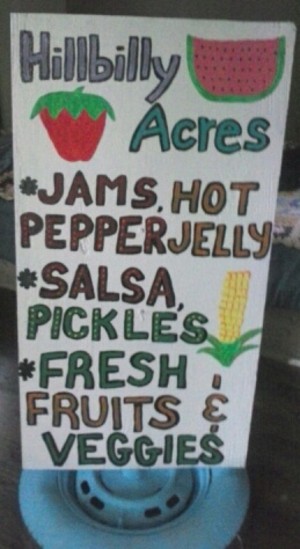 Hillbilly
Acres
*JAMS, HOT
PEPPER JELLY
*SALSA,
PICKLES
*FRESH
FRUITS &
VEGGIES